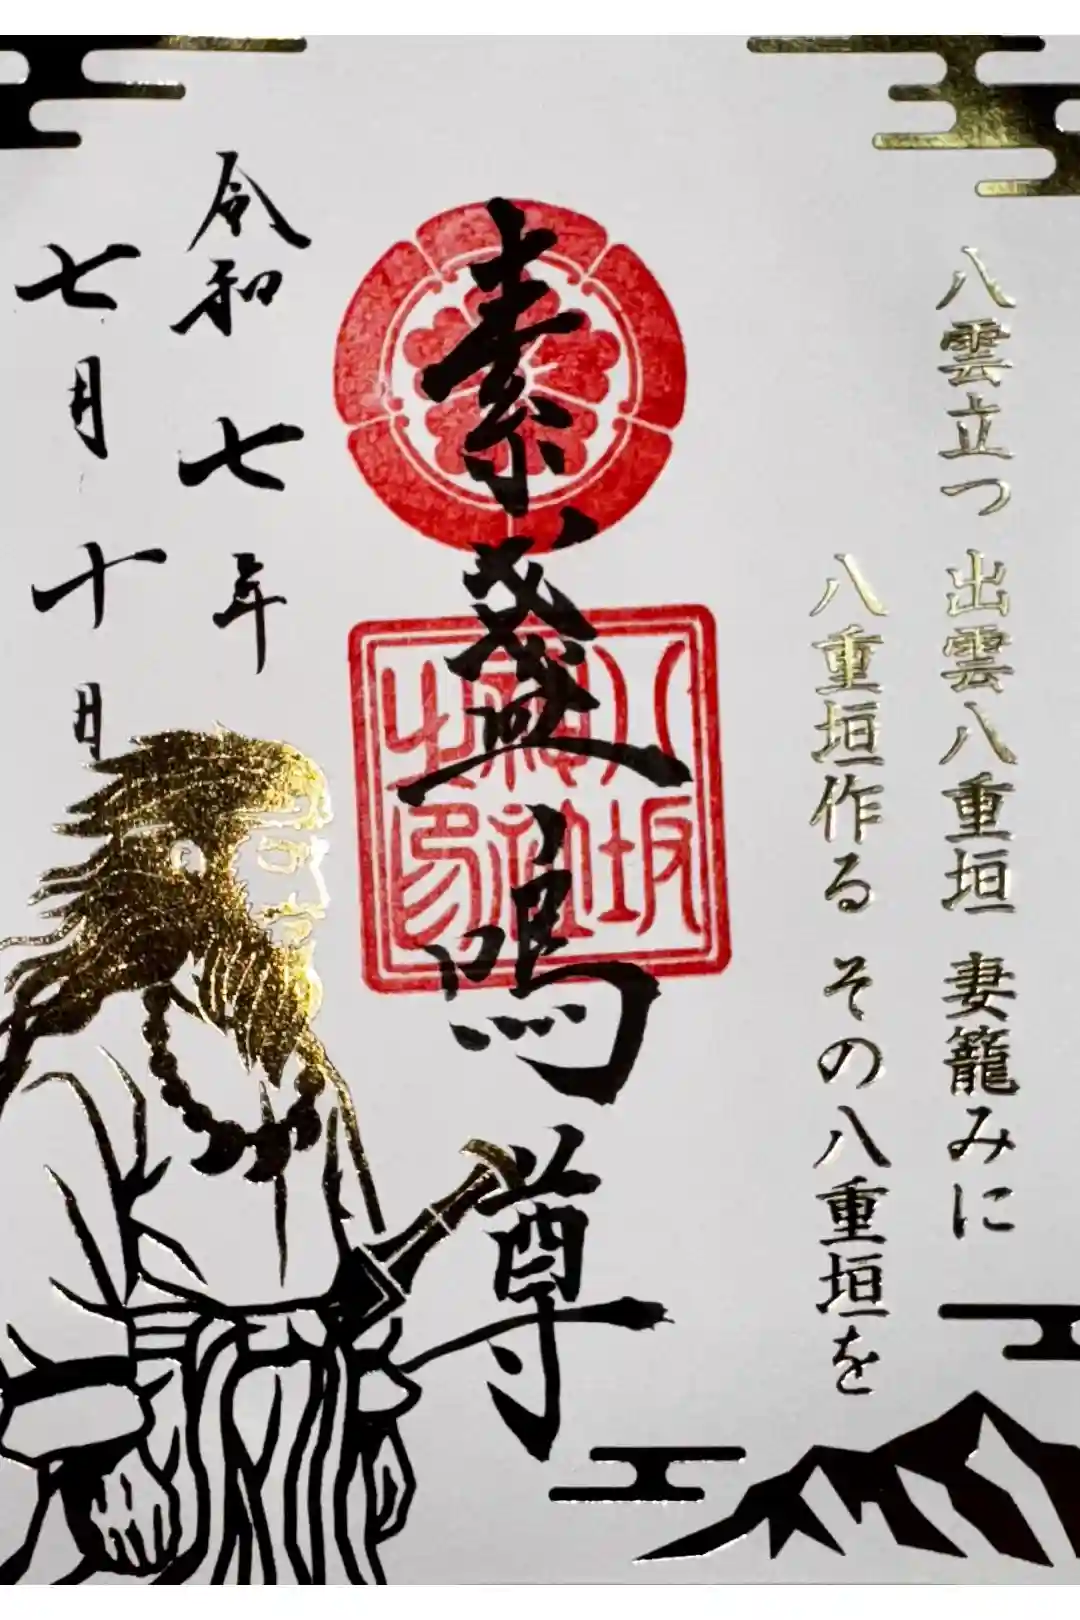 八雲立つ 出雲八重垣 妻籠みに
八重垣作る その八重垣を
素盞嗚尊
八坂
神社
之印
令和七年
七月十日